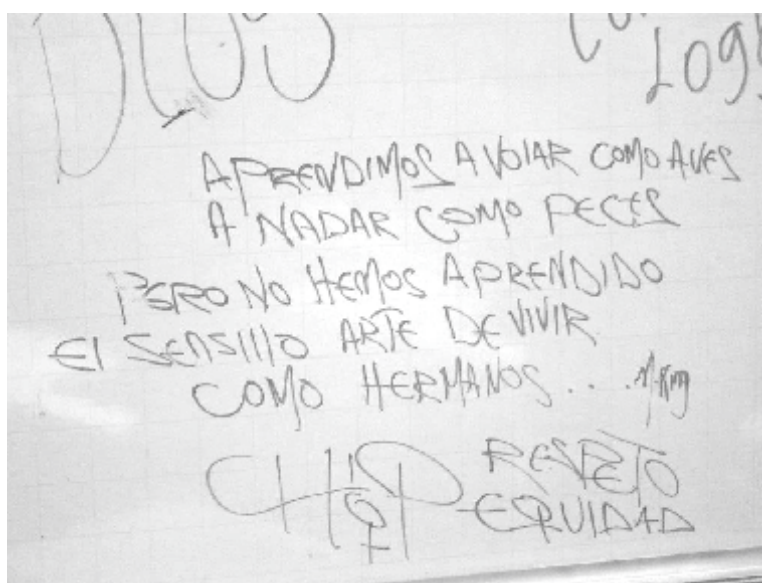 DIOS
LOG
APRENDIMOS A VOLAR COMO AVES
A NADAR COMO PECES
PERO NO HEMOS APRENDIDO
El SENSIllO ARTE DE VIVIR
COMO HERMANOS.... M.King
RESPETO
EQUIDAD